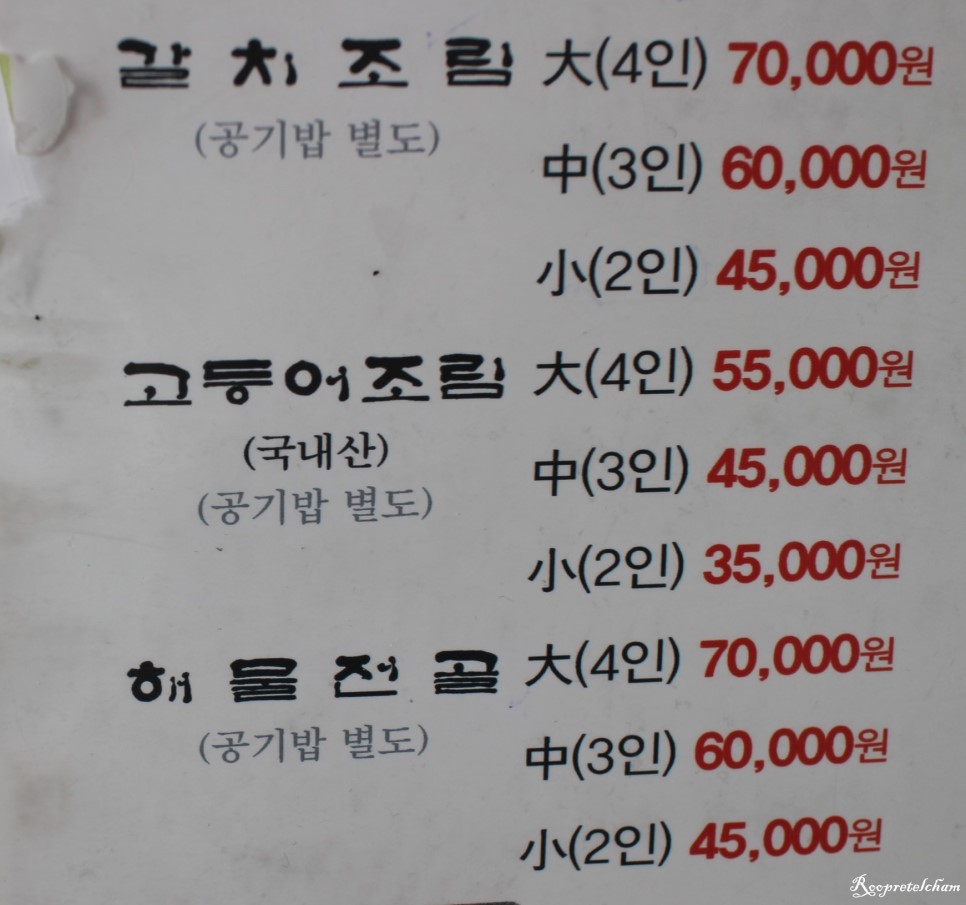 갈치조림 大(4인) 70,000원
(공기밥 별도)
中(3인) 60,000원
小(2인) 45,000원
고등어조림 大(4인) 55,000원
(국내산)
中(3인) 45,000원
(공기밥 별도)
小(2인) 35,000원
해물전골 大(4인) 70,000원
(공기밥 별도)
中(3인) 60,000원
小(2인) 45,000원
Roopretelcham